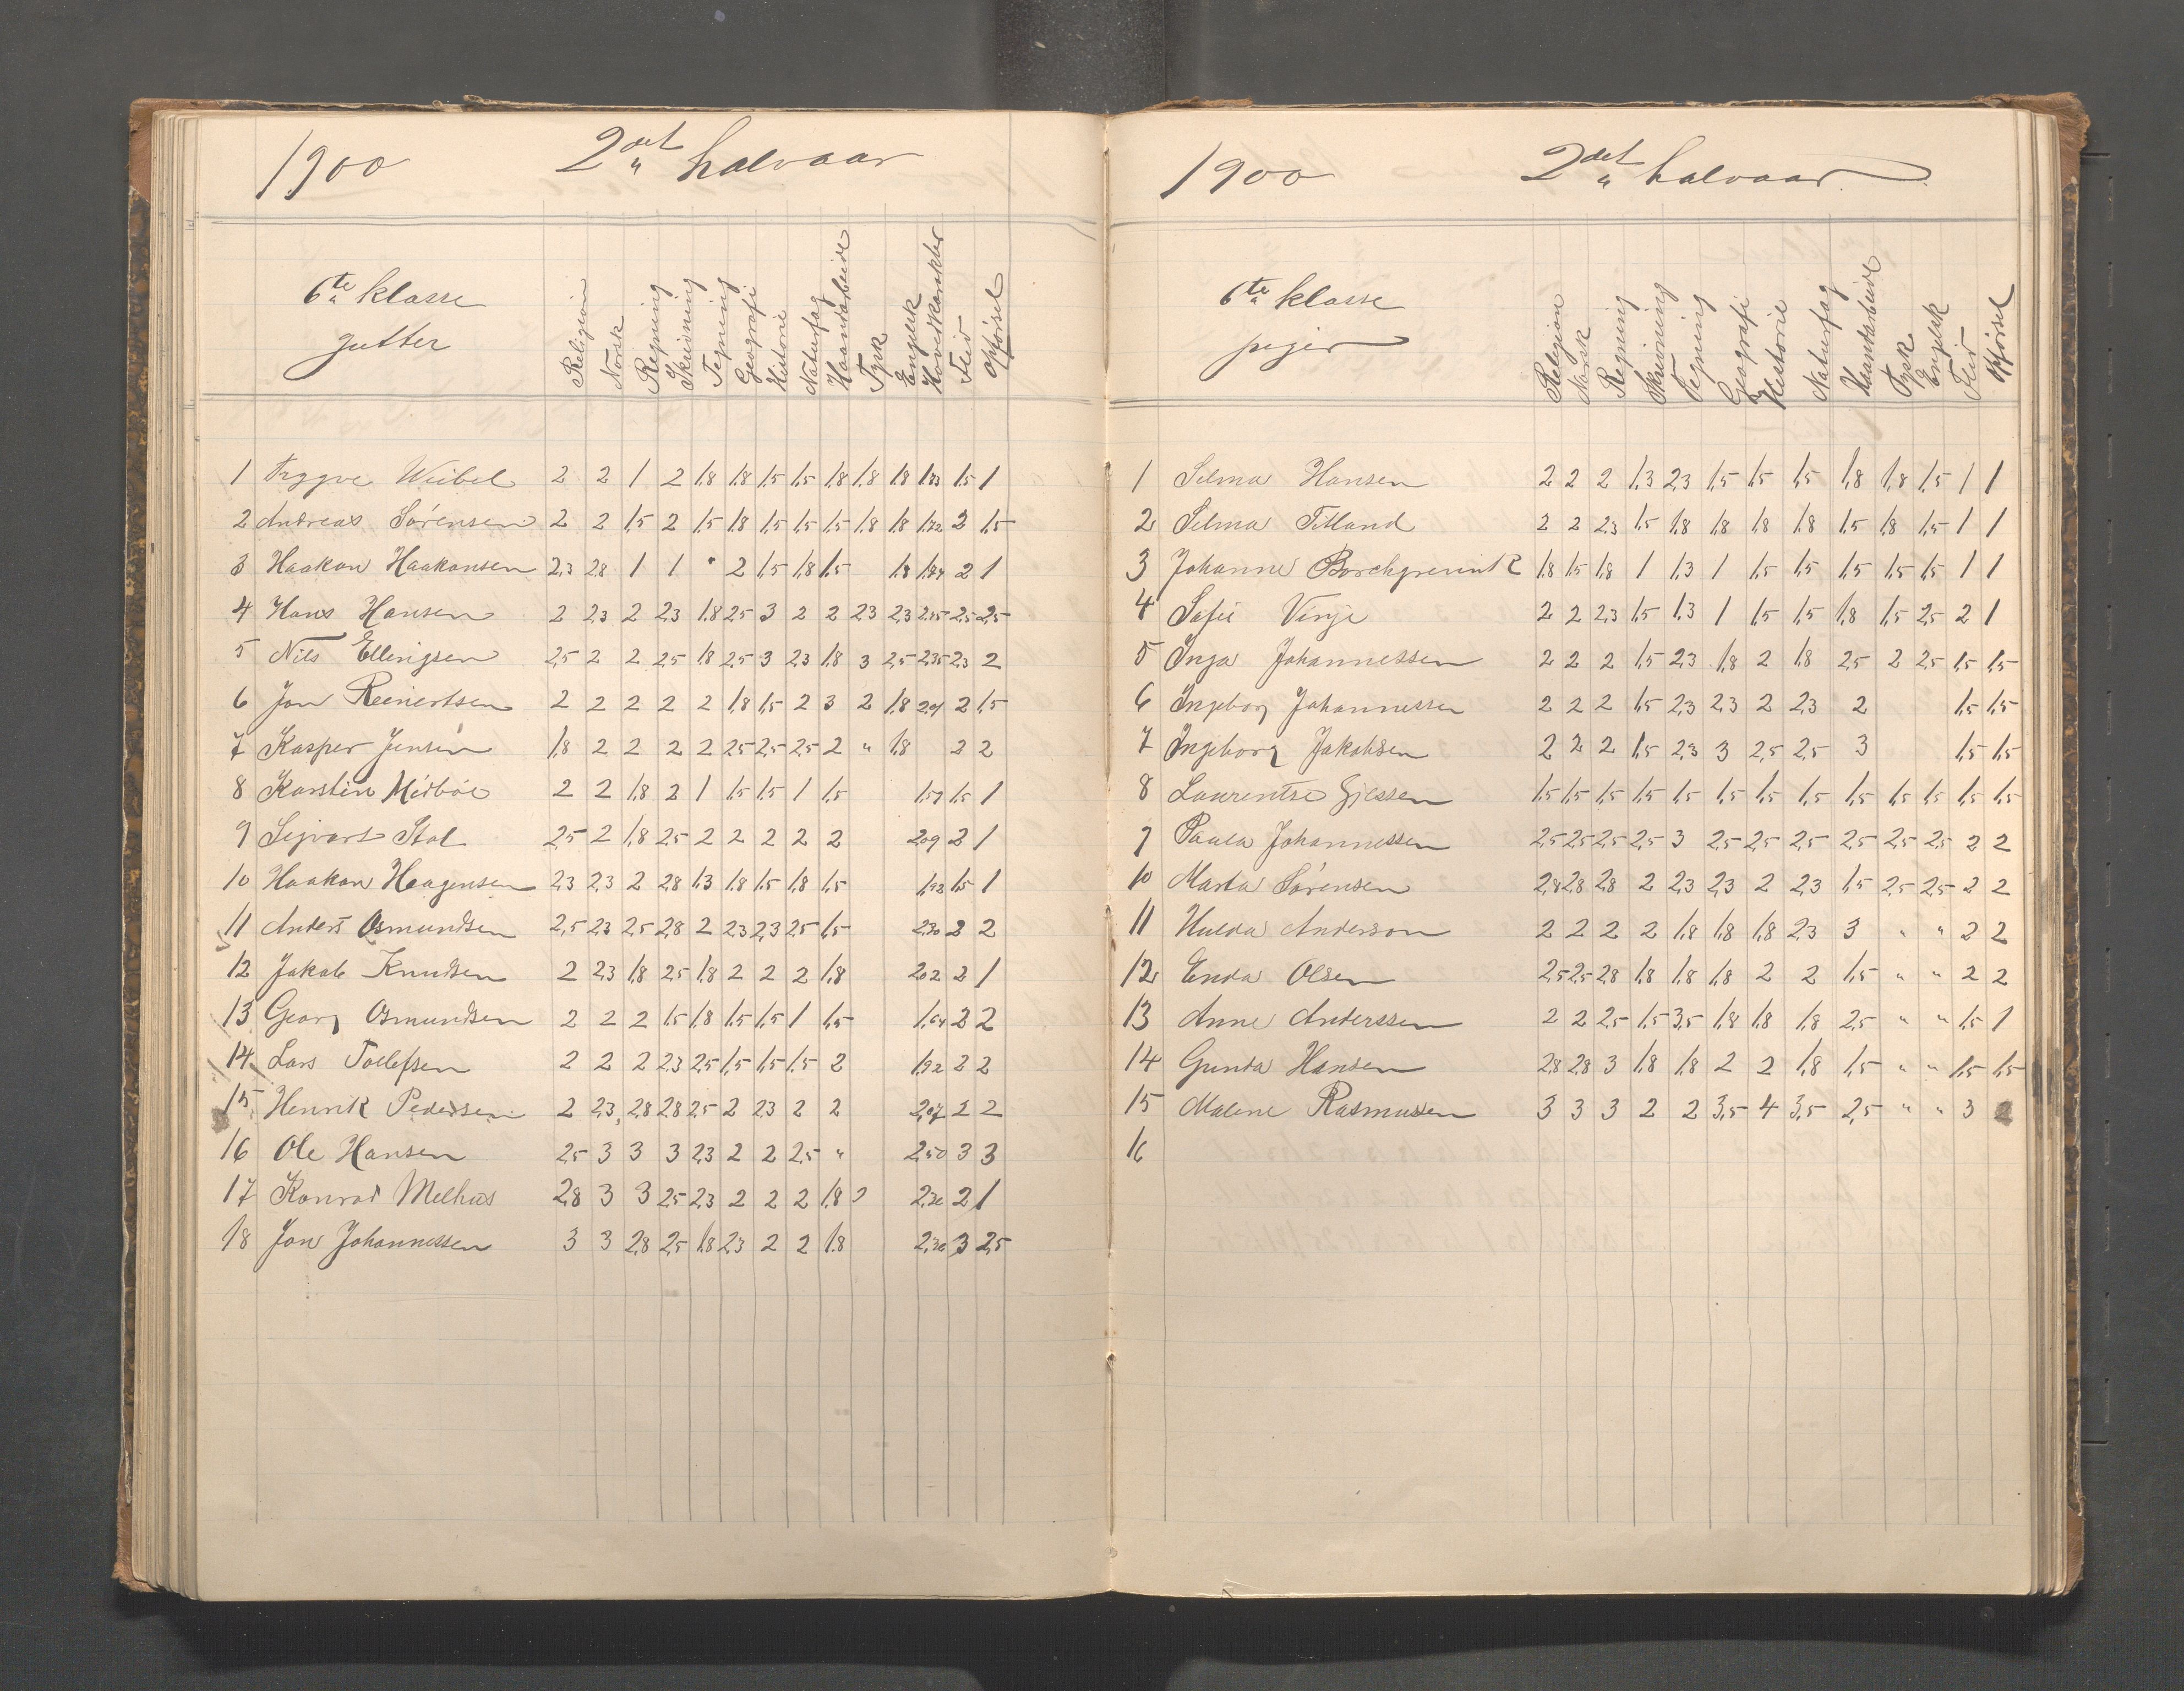 1900 2det halvaar
6te klasse
gutter
Religion Norsk Regning Skrivning Tegning Geografi Historie Naturfag Haandarbeide Tysk Engelsk Hovedkarakter Flid Opførsel
1 Trygve Weibel 2 2 1 2 1,8 1,8 1,5 1,5 1,8 1,8 1,8 1,83 1,5 1
2 Andreas Sørensen 2 2 1,5 2 1,5 1,8 1,5 1,5 1,5 1,8 1,8 1,72 2 1,5
3 Haakon Haakonsen 2,3 2,8 1 1 " 2 1,5 1,8 1,5 1,8 1,84 2 1
4 Hans Hansen 2 2,3 2 2,3 1,8 2,5 3 2 2 2,3 2,3 2,25 2,5
5 Nils Ellingsen 2,5 2 2 2,5 1,8 2,5 3 2,3 1,8 3 2,5 2,35 2,3 2
6 Jon Reinertsen 2 2 2 2 2 1,8 1,5 2 3 2 1,8 2,01 2 1,5
7 Kasper Jensen 1,8 2 2 2 2 2,5 2,5 2,5 2 " 1,8 2 2
8 Karsten Midbøe 2 2 1,8 2 1 1,5 1,5 1 1,5 1,59 1,5 1
9 Sigvart Stol 2,5 2 1,8 2,5 2 2 2 2 2 2,09 2 1
10 Haakon Haagensen 2,3 2,3 2 2,8 1,3 1,8 1,5 1,8 1,5 1,92 1,5 1
11 Anders Osmundsen 2,5 2,3 2,5 2,8 2 2,3 2,3 2,5 1,5 2,30 2 2
12 Jakob Knudsen 2 2,3 1,8 2,5 1,8 2 2 2 1,8 2,02 2 1
13 Georg Osmundsen 2 2 2 1,5 1,8 1,5 1,5 1 1,5 1,64 2 2
14 Lars Tollefsen 2 2 2 2,3 2,5 1,5 1,5 1,5 2 1,92 2 2
15 Henrik Pedersen 2 2,3 2,8 2,8 2,5 2 2,3 2 2 2,07 2 2
16 Ole Hansen 2,5 3 3 3 2,3 2 2 2,5 " 2,50 3 3
17 Konrad Melhus 2,8 3 3 2,5 2,3 2 2 2 1,8 2,30 2 1
18 Jon Johannessen 3 3 2,8 2,5 1,8 2,3 2 2 1,8 2,36 3 2,5
1900 2det halvaar
6te klasse
piger
Religion Norsk Regning Skrivning Tegning Geografi Historie Naturfag Haandarbeide Tysk Engelsk Flid Opførsel
1 Selma Hansen 2 2 2 1,3 2,3 1,5 1,5 1,5 1,8 1,8 1,5 1 1
2 Selma Titland 2 2 2,3 1,5 1,8 1,8 1,8 1,8 1,5 1,8 1,5 1 1
3 Johanne Borchgrevink 1,8 1,5 1,8 1 1,3 1 1,5 1,5 1,5 1,5 1,5 1 1
4 Sofie Vinje 2 2 2,3 1,5 1,3 1 1,5 1,5 1,8 1,5 2,5 2 1
5 Inga Johannessen 2 2 2 1,5 2,3 1,8 2 1,8 2,5 2 2,5 1,5 1,5
6 Ingeborg Johannessen 2 2 2 1,5 2,3 2,3 2 2,3 2 1,5 1,5
7 Ingeborg Jakobsen 2 2 2 1,5 2,3 3 2,5 2,5 3 1,5 1,5
8 Laurentse Gjessen 1,5 1,5 1,5 1,5 1,5 1,5 1,5 1,5 1,5 1,5 1,5 1,5 1,5
9 Paula Johannessen 2,5 2,5 2,5 2,5 3 2,5 2,5 2,5 2,5 2,5 2,5 2 2
10 Marta Sørensen 2,8 2,8 2,8 2 2,3 2,3 2 2,3 1,5 2,5 2,5 2 2
11 Hulda Anderson 2 2 2 2 1,8 1,8 1,8 2,3 3 " " 2 2
12 Enda Olsen 2,5 2,5 2,8 1,8 1,8 1,8 2 2 1,5 " " 2 2
13 Anne Anderssen 2 2 2,5 1,5 3,5 1,8 1,8 1,8 2,5 " " 1,5 1
14 Gunda Hansen 2,8 2,8 3 1,8 1,8 2 2 1,8 1,5 " " 1,5 1,5
15 Malene Rasmussen 3 3 3 2 2 3,5 4 3,5 2,5 " " 3
16